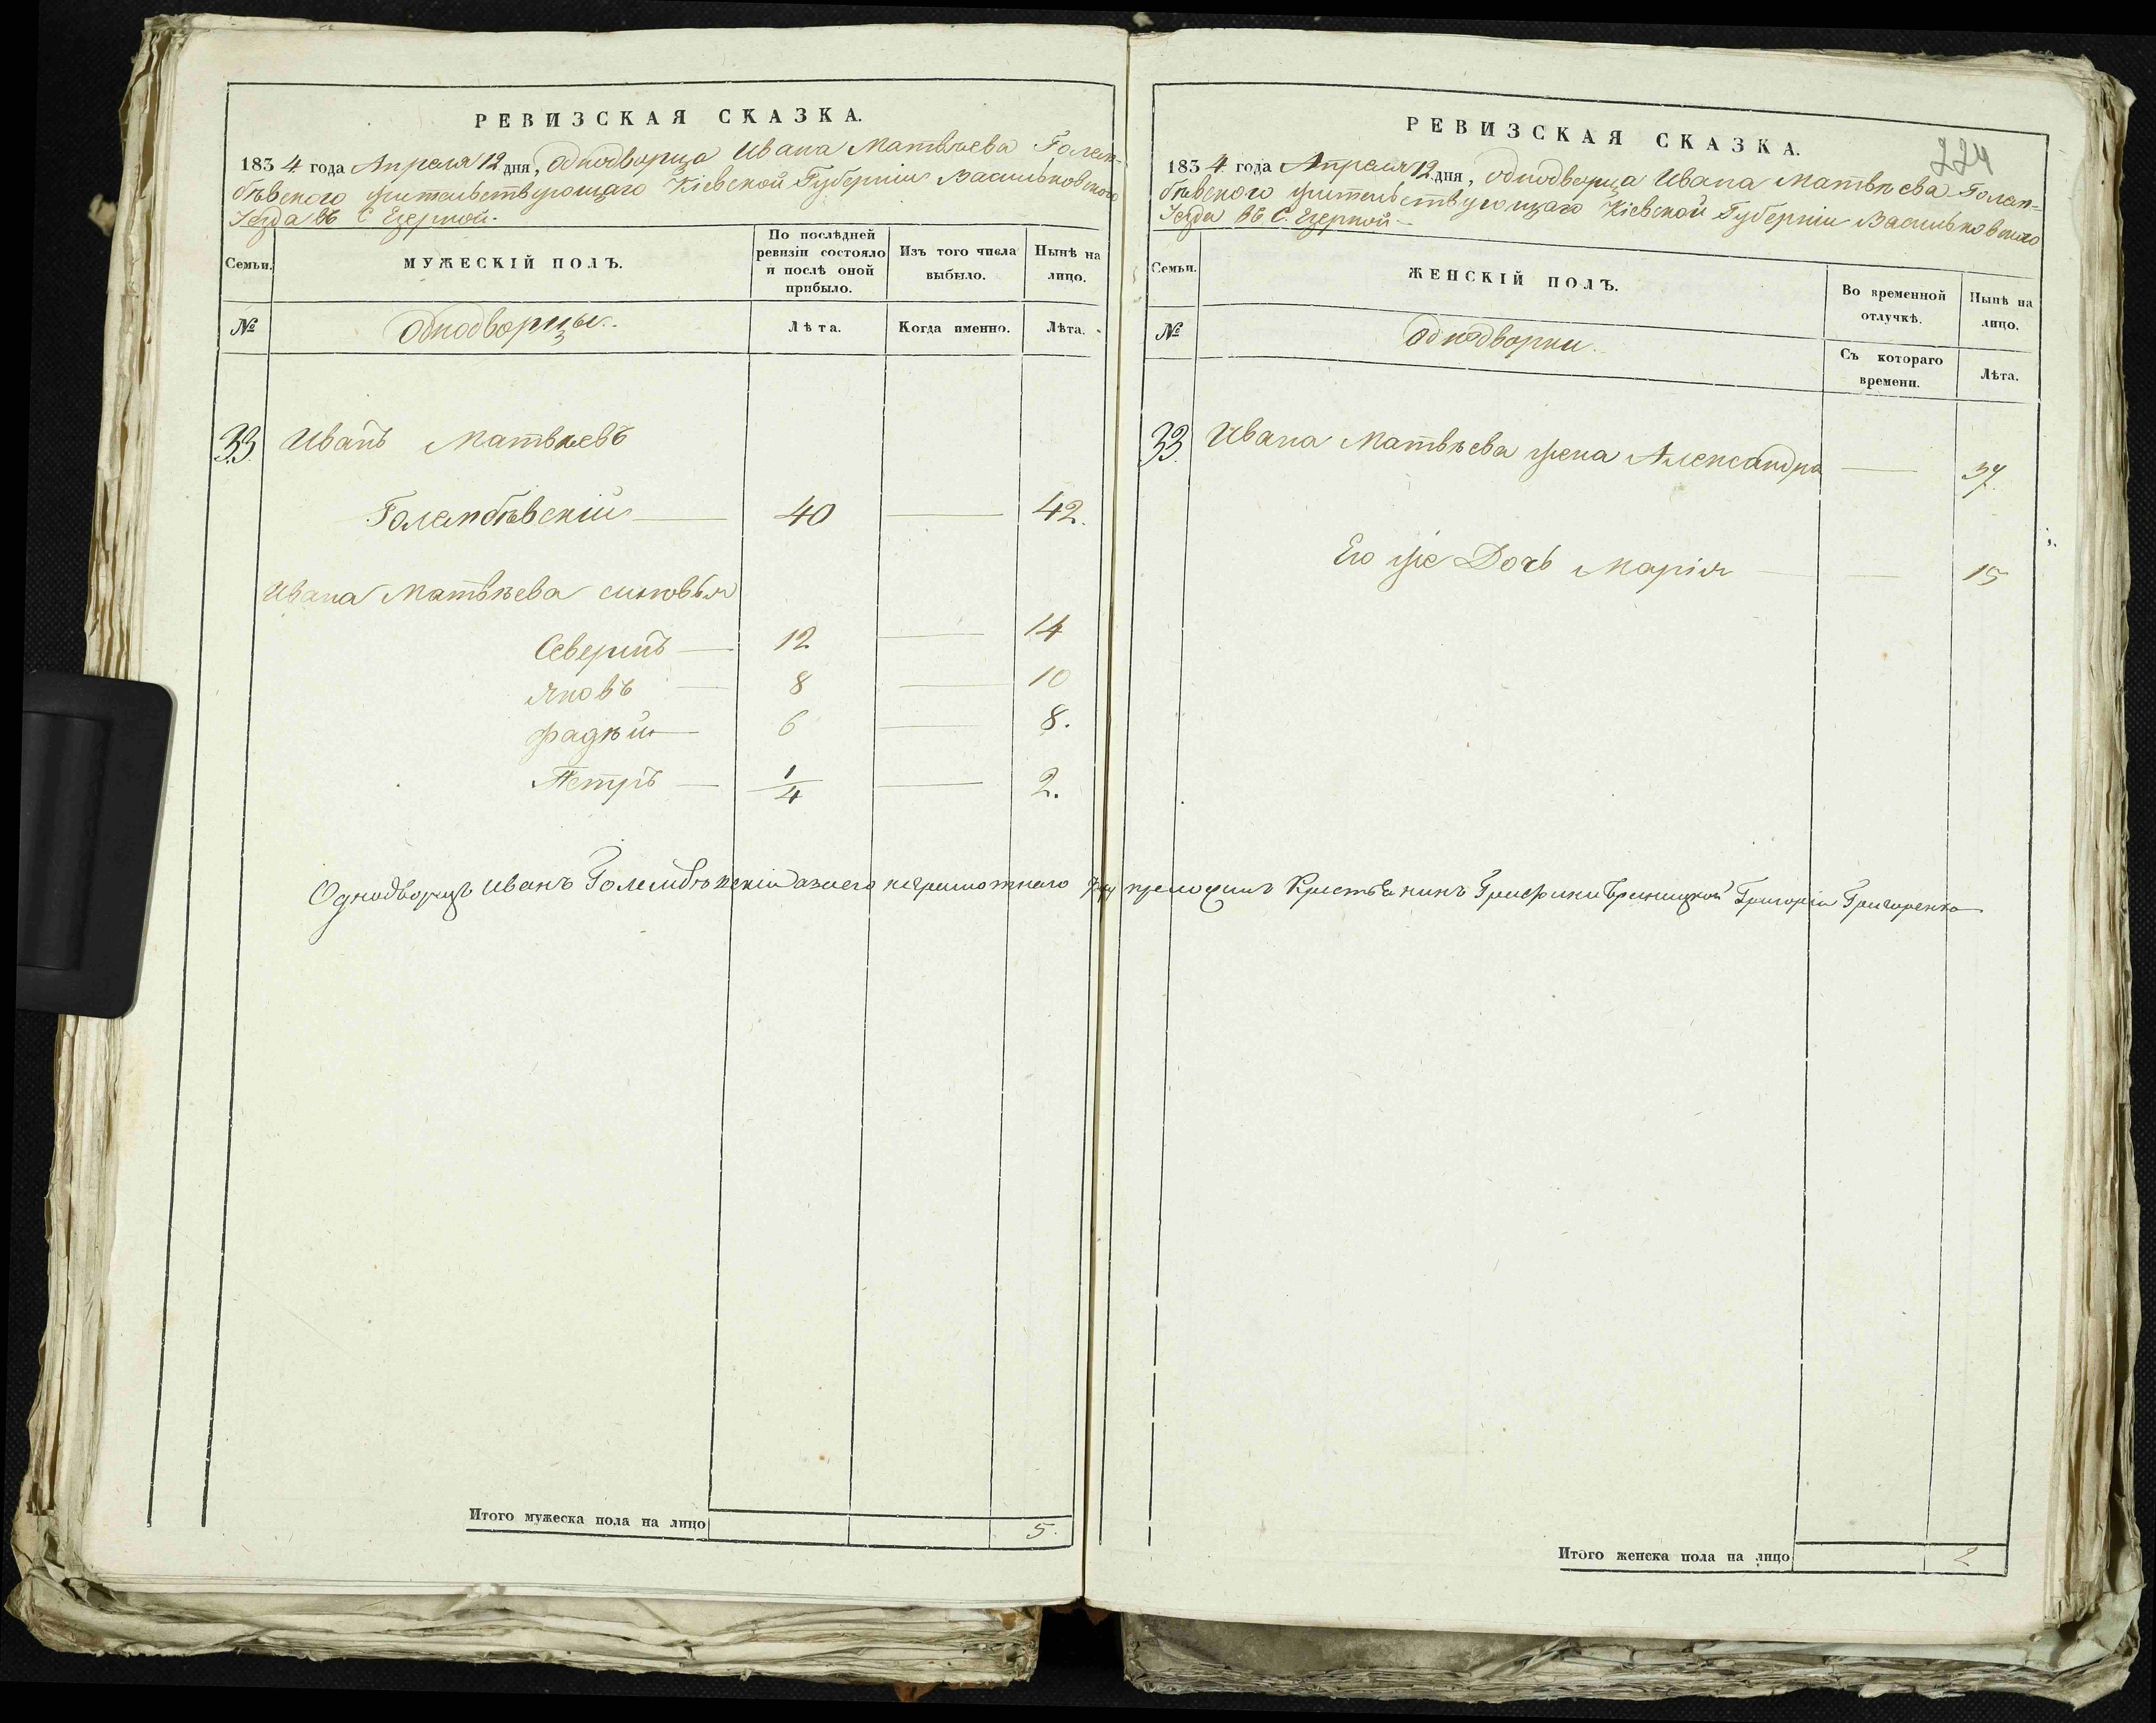 РЕВИЗСКАЯ СКАЗКА.
1834 года Апреля 12 дня, Однодворца Ивана Матвѣева Голем-
бѣвского жительствующаго Кіевской Губерніи Васильковского
Уезда въ С Езерной.
Семьи.
МУЖЕСКІЙ ПОЛЪ.
По послѣдней ревизіи состояло и послѣ оной прибыло.
Изъ того числа выбыло.
Нынѣ на лицо.
№
Однодворцы.
Лѣта.
Когда именно.
Лѣта.
33. Иванъ Матвѣевъ
Голембѣвскій — 40 — 42.
Ивана Матвѣева сыновья
Северинъ — 12 — 14
Яковъ — 8 — 10
Фадѣй — 6 — 8.
Петръ — 1/4 — 2.
Итого мужеска пола на лицо 5.
224
РЕВИЗСКАЯ СКАЗКА.
1834 года Апреля 12 дня, Однодворца Ивана Матвѣева Голем-
бѣвского жительствующаго Кіевской Губерніи Васильковского
Уезда въ С. Езерной
Семьи.
ЖЕНСКІЙ ПОЛЪ.
Во временной отлучкѣ.
Нынѣ на лицо.
№
Однодворки.
Съ котораго времени.
Лѣта.
33. Ивана Матвѣева жена Александра — 37.
Его же Дочь Марія — — 15
Однодворецъ Иванъ Голембѣвскій а заего неграмотнаго Григорій Григоренко
Итого женска пола на лицо 2